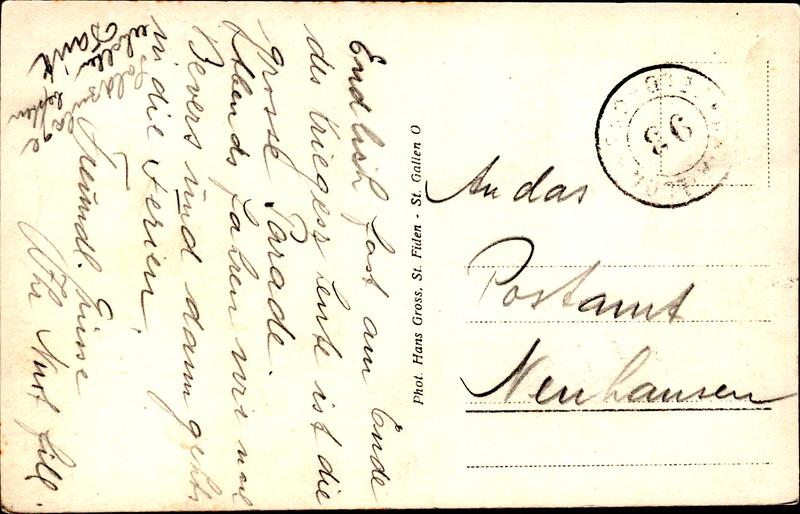 Endlich fast am Ende
des Krieges! Heute ist die
grosse Parade.
Abends fahren wir nach
Bevers und dann gehts
in die Ferien!
Freundl. Grüsse
Ihr Kurt
Dank
Soldzulage
Phot. Hans Gross, St. Fiden - St. Gallen O
An das
Postamt
Neuhausen